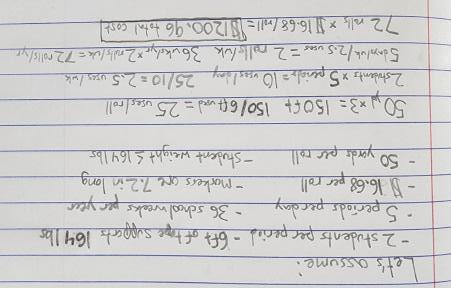 Let's assume:
- 2 students per period - 6ft of tape supports 164 lbs
- 5 periods per day - 36 school weeks per year
- $16.68 per roll - markers are 7.2 in long
- 50 yards per roll - student weight ≤ 164 lbs
50 yd × 3 = 150ft 150/6ft used = 25 uses/roll
2 students × 5 periods = 10 uses/day 25/10 = 2.5 uses/wk
5 days/wk/2.5 uses = 2 rolls/wk 36 wks/yr × 2 rolls/wk = 72 rolls/yr
72 rolls × $16.68/roll = $1200.96 total cost